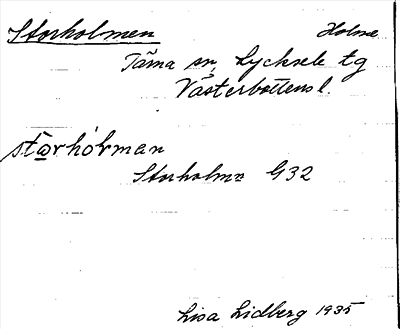 Storholmen Holme
Tärna sn, Lycksele tg
Västerbottens l.
Storholmn G32
Lisa Lidberg 1935